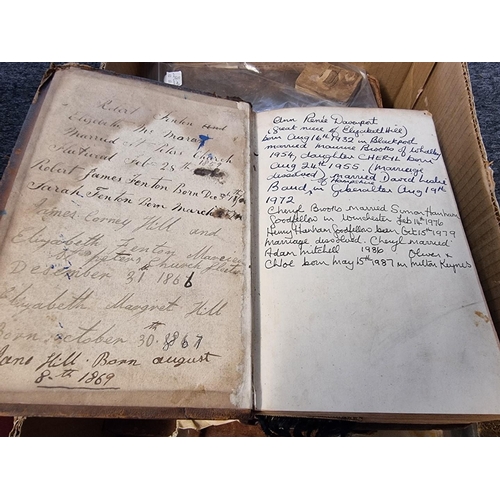 Robert Fenton and
Elizabeth
Married St Peters Church
Feb 28th
Robert James Fenton Born Dec 3rd
Sarah Fenton Born March
James Corney Hill and
Elizabeth Fenton Married
St Peters Church
December 31st 1866
Elizabeth Margret Hill
Born October 30th 1867
Jane Hill. Born august
8th 1869
Ann Renée Davenport
(Great niece of Elizabeth Hill)
born Aug 16th 1932 in Blackpool
married Maurice Brooks of Whalley
1954, daughter CHERYL born
Aug 26th 1955 (marriage
dissolved). Married David Leslie
Baud, in Gibraltar Aug 19th
1972
Cheryl Brooks married Simon Harsham
Goodfellow in Winchester Feb 14th 1976
Henry Harsham Goodfellow born Oct 15th 1979
marriage dissolved. Cheryl married
Adam Mitchell 1986 Oliver &
Chloe born May 15th 1987 in Milton Keynes